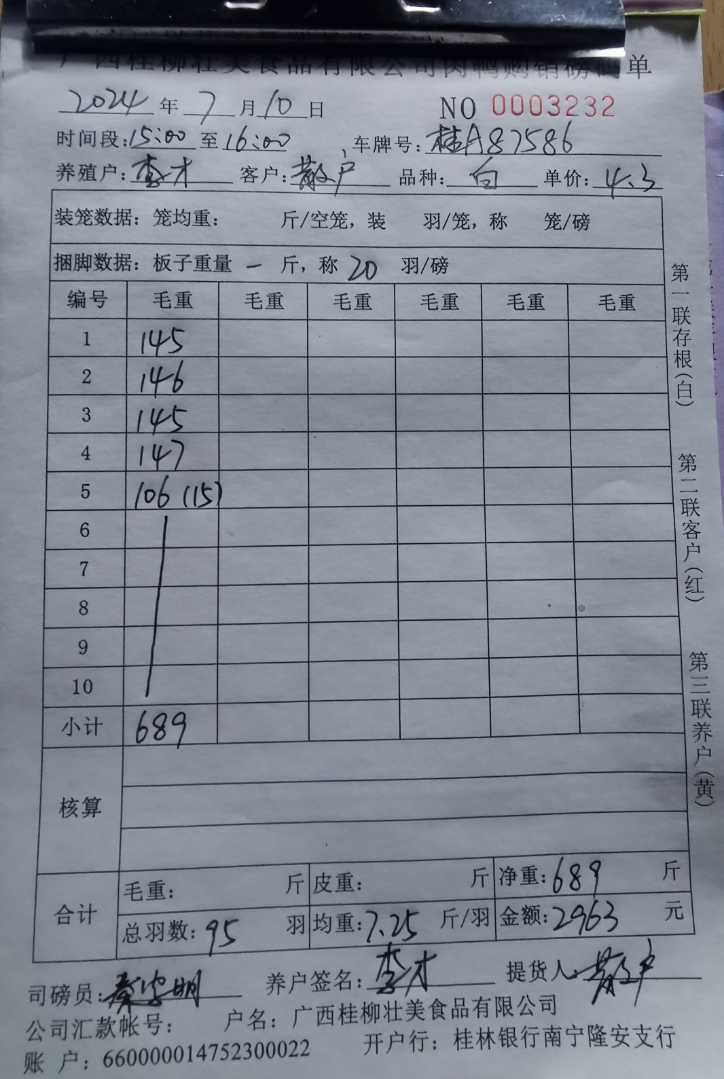 广西桂柳壮美食品有限公司肉鸭购销磅码单
2024 年 7 月 10 日 NO 0003232
时间段:15:00 至 16:00 车牌号: 桂A87586
养殖户: 李才 客户: 散户 品种: 白 单价: 4.3
装笼数据: 笼均重: 斤/空笼, 装 羽/笼, 称 笼/磅
捆脚数据: 板子重量 一 斤, 称 20 羽/磅
编号 毛重 毛重 毛重 毛重 毛重 毛重
1 145
2 146
3 145
4 147
5 106 (15)
6
7
8
9
10
小计 689
核算
合计
毛重: 斤 皮重: 斤 净重: 689 斤
总羽数: 95 羽 均重: 7.25 斤/羽 金额: 2963 元
司磅员: 养户签名: 李才 提货人 散户
公司汇款帐号: 户名: 广西桂柳壮美食品有限公司
账 户: 660000014752300022 开户行: 桂林银行南宁隆安支行
第一联存根(白)
第二联客户(红)
第三联养户(黄)